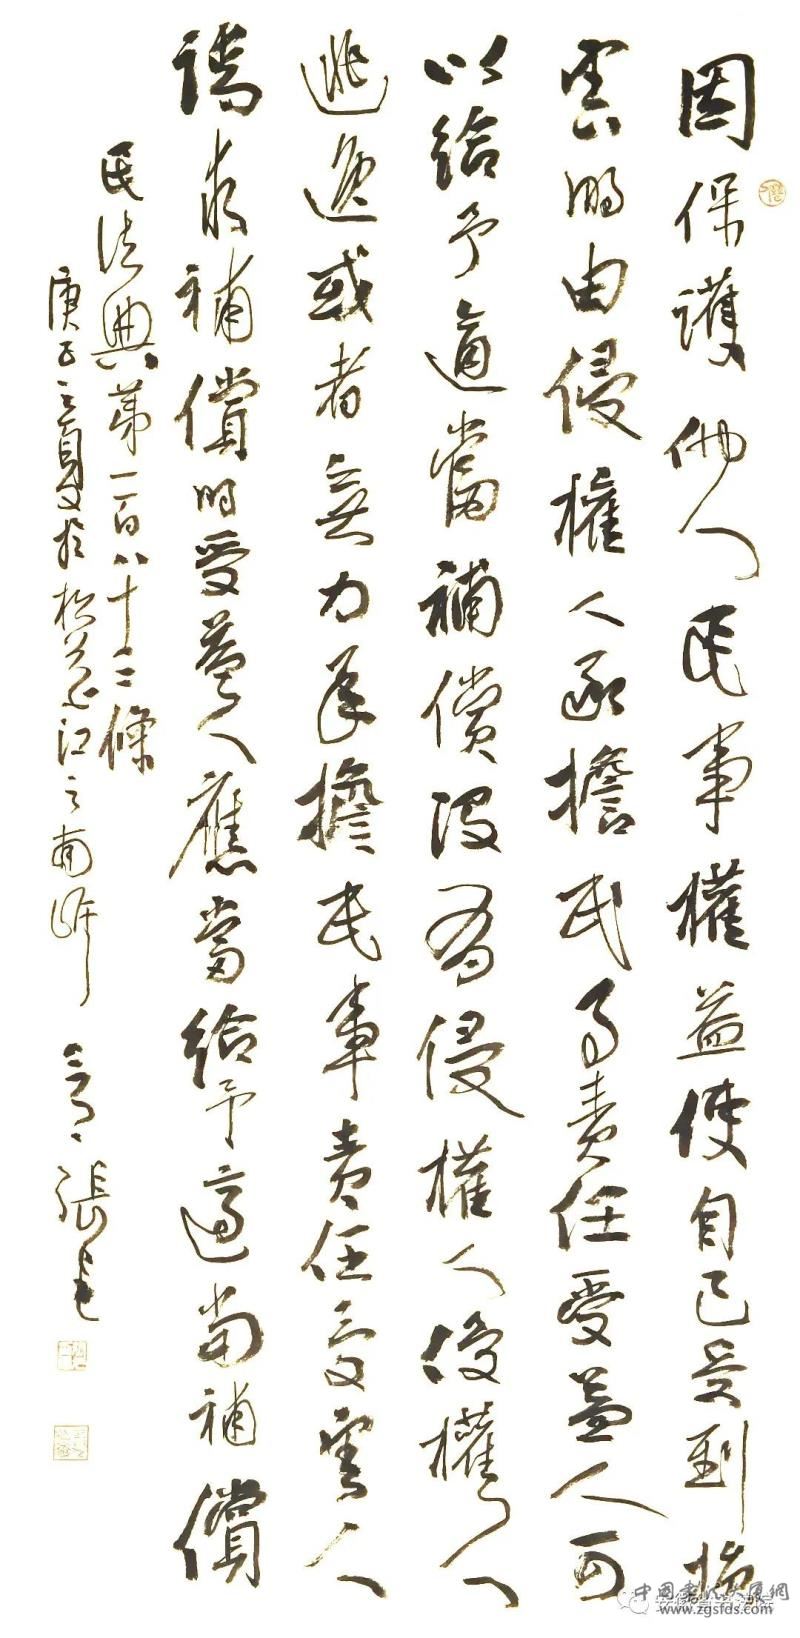 因保護他人民事權益使自己受到損
害的由侵權人承擔民事責任受益人可
以給予適當補償没有侵權人侵權人
逃逸或者無力承擔民事責任受害人
請求補償的受益人應當給予適當補償
民法典第一百八十三條
庚子之夏於松花江之南岸 張
中國書法大展網
www.zgsfds.com